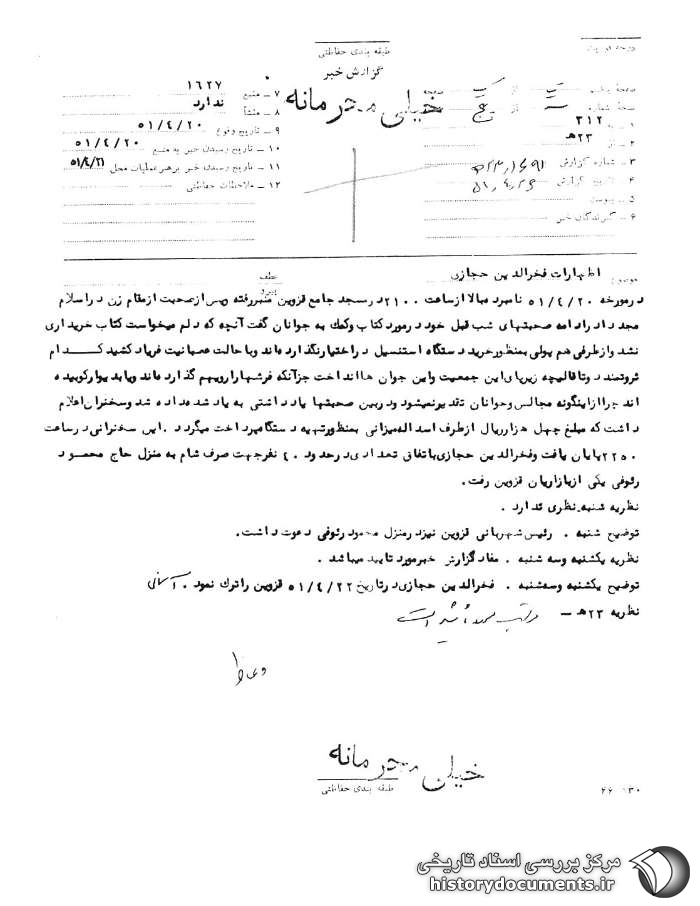 طبقه بندی حفاظتی
گزارش خبر
خیلی محرمانه
۱ - به ۳۱۲
۲ - از ۲۳هـ
۳ - شماره گزارش
۴ - تاریخ گزارش
۵ - پیوست
۶ - گیرندگان خبر
۷ - منبع ۱۶۲۷
۸ - منشأ ندارد
۹ - تاریخ وقوع ۵۱/۴/۲۰
۱۰ - تاریخ رسیدن خبر به منبع ۵۱/۴/۲۰
۱۱ - تاریخ رسیدن خبر برهبر عملیات محل ۵۱/۴/۲۱
۱۲ - ملاحظات حفاظتی
موضوع اظهارات فخرالدین حجازی
عطف
پیرو
درمورخه ۵۱/۴/۲۰ نامبرده بالا ازساعت ۲۱۰۰ درمسجد جامع قزوین منبررفته وپس ازصحبت ازمقام زن دراسلام
مجددا درادامه صحبتهای شب قبل خود درمورد کتاب وکمک به جوانان گفت آنچه که دلم میخواست کتاب خریداری
نشد وازطرفی هم پولی بمنظورخرید دستگاه استنسیل دراختیارنگذارده اند وباحالت عصبانیت فریاد کشید کدام
ثروتمند دوتا قالیچه زیرپای این جمعیت واین جوان ها انداخت جزآنکه فرشهاراروبهم گذارده اند ویا بدیوارکوبیده
اند چراازاینگونه مجالس وجوانان تقدیرنمیشود ودربین صحبتها یادداشتی به یادشده داده شد وسخنران اعلام
داشت که مبلغ چهل هزارریال ازطرف اسداله میزانی بمنظورتهیه دستگاه پرداخت میگردد . این سخنرانی درساعت
۲۲۵۰ پایان یافت وفخرالدین حجازی باتفاق تعدادی درحدود ۴۰ نفرجهت صرف شام به منزل حاج محمود
رئوفی یکی ازبازاریان قزوین رفت.
نظریه شنبه. نظری ندارد .
توضیح شنبه . رئیس شهربانی قزوین نیزدرمنزل محمود رئوفی دعوت داشت.
نظریه یکشنبه وسه شنبه . مفاد گزارش خبرمورد تایید میباشد .
توضیح یکشنبه وسه شنبه . فخرالدین حجازی درتاریخ ۵۱/۴/۲۲ قزوین راترک نمود . آسانی
نظریه ۲۳هـ -
خیلی محرمانه
طبقه بندی حفاظتی
مرکز بررسی اسناد تاریخی
historydocuments.ir